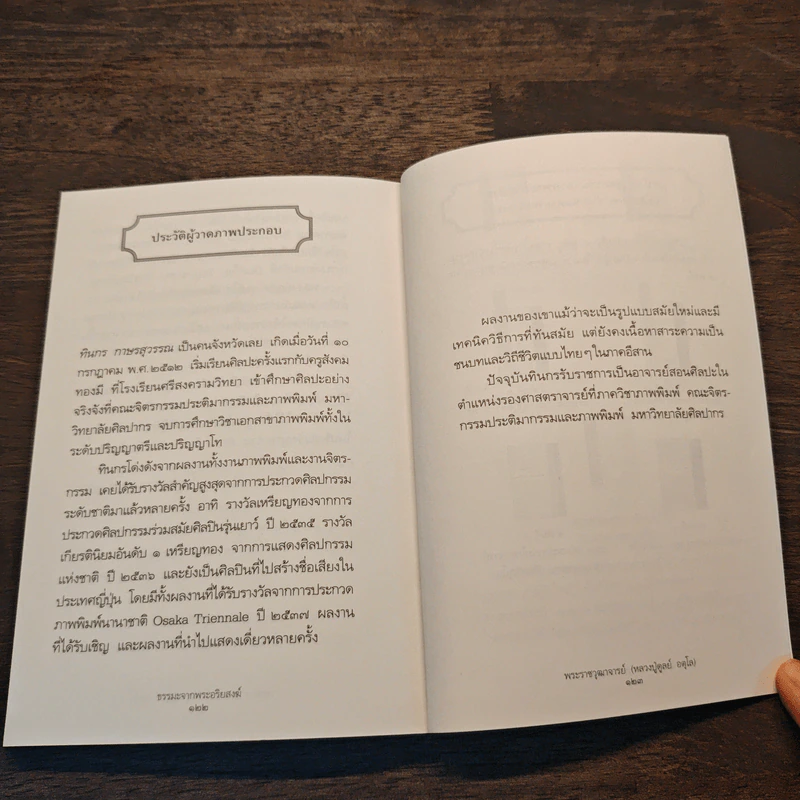 ประวัติผู้วาดภาพประกอบ
ทินกร กาษรสุวรรณ เป็นคนจังหวัดเลย เกิดเมื่อวันที่ ๑๐
กรกฎาคม พ.ศ.๒๕๑๒ เริ่มเรียนศิลปะครั้งแรกกับครูสังคม
ทองมี ที่โรงเรียนศรีสงครามวิทยา เข้าศึกษาศิลปะอย่าง
จริงจังที่คณะจิตรกรรมประติมากรรมและภาพพิมพ์ มหา-
วิทยาลัยศิลปากร จบการศึกษาวิชาเอกสาขาภาพพิมพ์ทั้งใน
ระดับปริญญาตรีและปริญญาโท
ทินกรโด่งดังจากผลงานทั้งงานภาพพิมพ์และงานจิตร-
กรรม เคยได้รับรางวัลสำคัญสูงสุดจากการประกวดศิลปกรรม
ระดับชาติมาแล้วหลายครั้ง อาทิ รางวัลเหรียญทองจากการ
ประกวดศิลปกรรมร่วมสมัยศิลปินรุ่นเยาว์ ปี ๒๕๓๕ รางวัล
เกียรตินิยมอันดับ ๑ เหรียญทอง จากการแสดงศิลปกรรม
แห่งชาติ ปี ๒๕๓๖ และยังเป็นศิลปินที่ไปสร้างชื่อเสียงใน
ประเทศญี่ปุ่น โดยมีทั้งผลงานที่ได้รับรางวัลจากการประกวด
ภาพพิมพ์นานาชาติ Osaka Triennale ปี ๒๕๓๗ ผลงาน
ที่ได้รับเชิญ และผลงานที่นำไปแสดงเดี่ยวหลายครั้ง
ธรรมะจากพระอริยสงฆ์
๑๒๒
ผลงานของเขาแม้ว่าจะเป็นรูปแบบสมัยใหม่และมี
เทคนิควิธีการที่ทันสมัย แต่ยังคงเนื้อหาสาระความเป็น
ชนบทและวิถีชีวิตแบบไทยๆในภาคอีสาน
ปัจจุบันทินกรรับราชการเป็นอาจารย์สอนศิลปะใน
ตำแหน่งรองศาสตราจารย์ที่ภาควิชาภาพพิมพ์ คณะจิตร-
กรรมประติมากรรมและภาพพิมพ์ มหาวิทยาลัยศิลปากร
พระราชวุฒาจารย์ (หลวงปู่ดูลย์ อตุโล)
๑๒๓